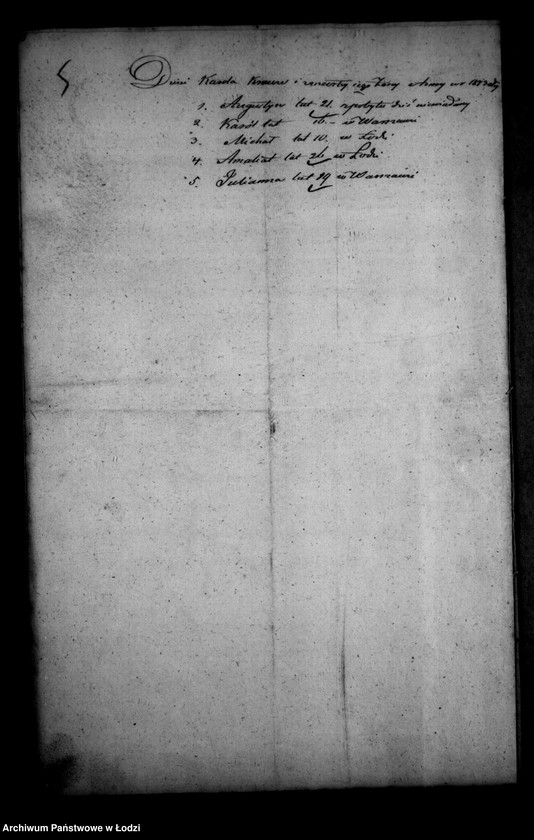 5
Dzieci Karola i zmarłej jego Żony w
1. Augustyn lat 21. z pobytu dziś niewiadomy
2. Karól lat 16.– w Warszawie
3. Michał lat 10. w Łodzi
4. Amalia lat 26 w Łodzi
5. Julianna lat 19 w Warszawie
Archiwum Państwowe w Łodzi